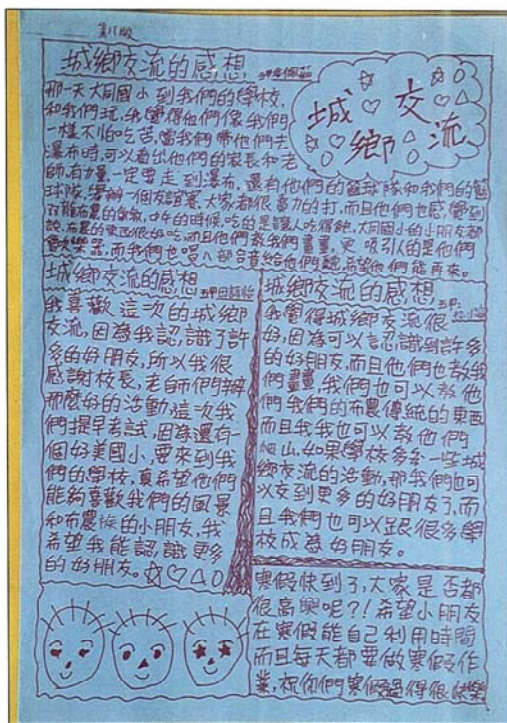 第八版
城鄉交流的感想
城鄉交流
那一天大同國小到我們的學校,
和我們玩,我覺得他們像我們
一樣不怕吃苦,當我們帶他們去
瀑布時,可以看出他們的家長和老
師,有力量一定要走到瀑布,還有他們的籃球隊和我們的籃
球隊,舉辦一個友誼賽,大家都很喜力的打,而且他們也感覺到
布農的
中午的時候,吃的是讓人吃得飽,大同國小的小朋友都
說,布農的東西很好吃,而且他們教我們畫畫,更吸引人的是他們
樂器,而我們也唱八部合音給他們聽,希望他們能再來。
城鄉交流的感想
我喜歡這次的城鄉
交流,因為我認識了許
多的好朋友,所以我很
感謝校長,老師們辦
那麼好的活動,這次我
們提早考試,因為還有一
個好美國小,要來到我
們的學校,真希望他們
能夠喜歡我們的風景
和布農族的小朋友,我
希望我能認識更多
的好朋友。
城鄉交流的感想
我覺得城鄉交流很
好,因為可以認識到許多
的好朋友,而且他們也教我
們畫畫,我們也可以教他
們我們的布農傳統的東西
而且我我也可以教他們
爬山,如果學校多年一些城
鄉交流的活動,那我們也可
以交到更多的好朋友了,而
且我們也可以跟很多學
校成為好朋友。
寒假快到了,大家是否都
很高興呢?!希望小朋友
在寒假能自己利用時間
而且每天都要做寒假作
業,祝你們寒假過得很快樂